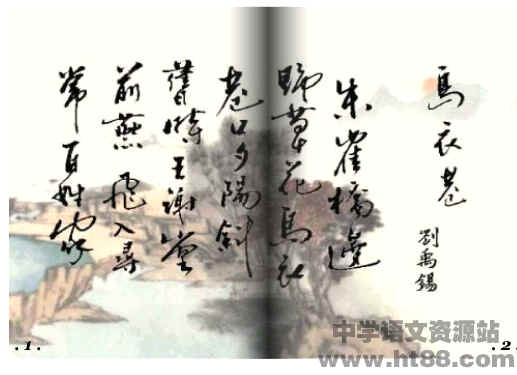 烏衣巷
劉禹錫
朱雀橋邊
野草花烏衣
巷口夕陽斜
舊時王謝堂
前燕飛入尋
常百姓家
中学语文资源站
www.ht88.com
.1.
.2.